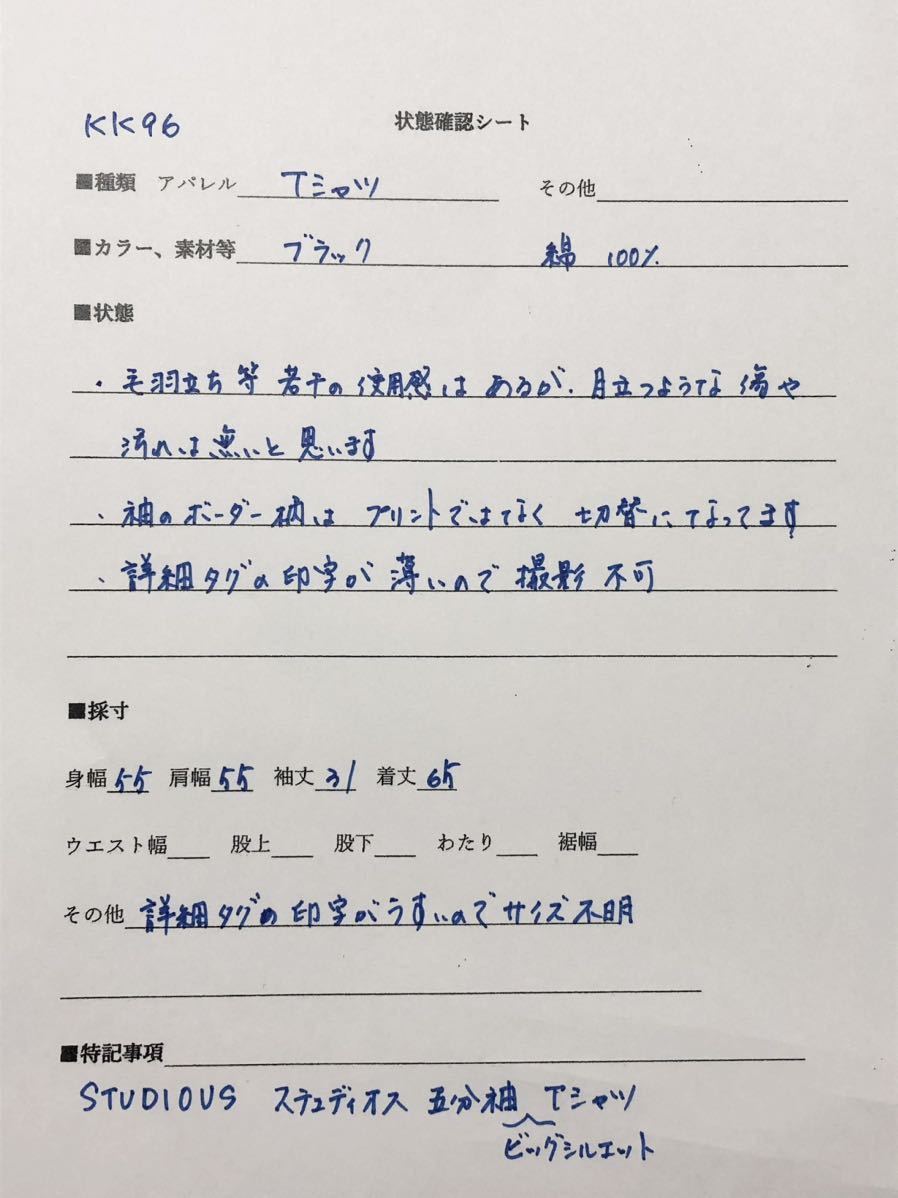 KK96 状態確認シート
■種類 アパレル Tシャツ その他
■カラー、素材等 ブラック 綿 100%
■状態
・毛羽立ち等 若干の使用感は あるが、目立つような 傷や
汚れは無いと思います
・袖のボーダー柄は プリントではなく 切替になってます
・詳細タグの印字が 薄いので 撮影 不可
■採寸
身幅 55 肩幅 55 袖丈 31 着丈 65
ウエスト幅 股上 股下 わたり 裾幅
その他 詳細タグの印字がうすいのでサイズ不明
■特記事項
STUDIOUS ステュディオス 五分袖 Tシャツ
ビッグシルエット